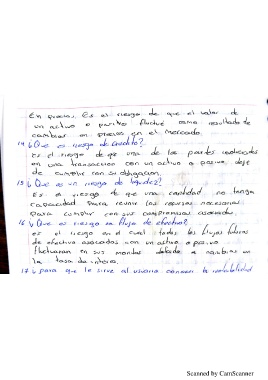 En precios. Es el riesgo de que el valor de
un activo o pasivo fluctúe como resultado de
cambios en precios en el mercado.
14. ¿Que es riesgo de credito?
Es el riesgo de que una de las partes involucradas
en una transaccion con un activo o pasivo, deje
de cumplir con su obligacion.
15. ¿Que es un riesgo de liquidez?
Es el riesgo que una cantidad no tenga
capacidad para reunir los recursos necesarios
para cumplir con sus compromisos asociados.
16. ¿Que es riesgo en flujo de efectivo?
es el riesgo en el cual todos los flujos futuros
de efectivo asociados con un activo o pasivo
fluctuaran en sus montos debido a cambios en
la tasa de interes.
17. ¿para que le sirve al usuario conocer la rentabilidad
Scanned by CamScanner